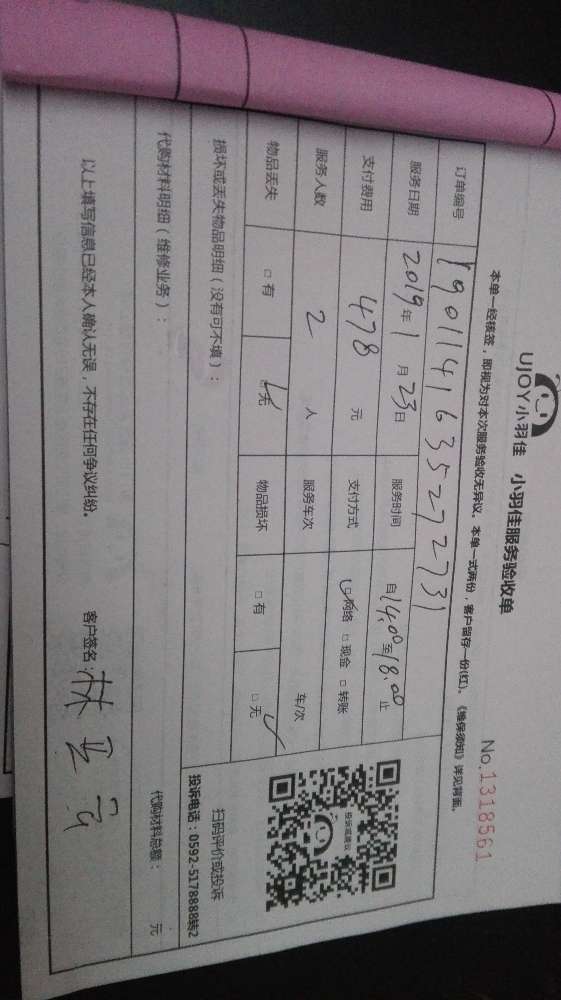 UJOY小羽佳 小羽佳服务验收单
No.1318561
本单一经核签，即视为对本次服务验收无异议。本单一式两份，客户留存一份(红)。《维保须知》详见背面。
订单编号 1901141635272731
服务日期 2019年1月23日 服务时间 自14:00至18:00止
支付费用 478元 支付方式 □网络 □现金 □转账
服务人数 2人 服务车次 车/次
物品丢失 □有 □无 物品损坏 □有 □无
扫码评价或投诉
投诉电话：0592-5178888转2
损坏或丢失物品明细（没有可不填）：
代购材料明细（维修业务）：
代购材料总额： 元
以上填写信息已经本人确认无误，不存在任何争议纠纷。 客户签名：林